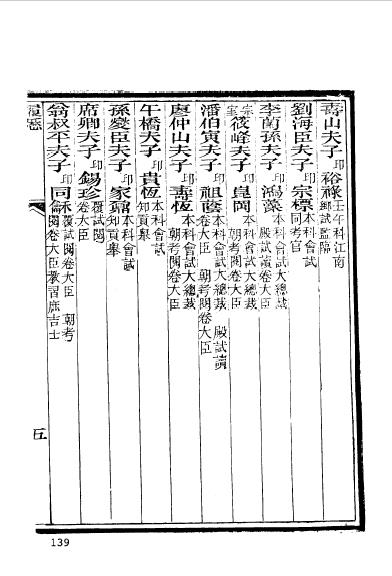 壽山夫子印裕祿壬午科江南鄉試監臨
劉海臣夫子印宗標本科會試同考官
李蘭孫夫子印鴻藻本科會試大總裁 殿試讀卷大臣
宗室筱峰夫子印崑岡本科會試大總裁 朝考閱卷大臣
潘伯寅夫子印祖蔭本科會試大總裁 殿試讀卷大臣 朝考閱卷大臣
廖仲山夫子印壽恆本科會試大總裁 朝考閱卷大臣
午橋夫子印貴恆本科會試知貢舉
孫燮臣夫子印家鼐本科會試知貢舉
席卿夫子印錫珍覆試閱卷大臣
翁叔平夫子印同龢覆試閱卷大臣 朝考閱卷大臣教習庶吉士
履歷
五
139